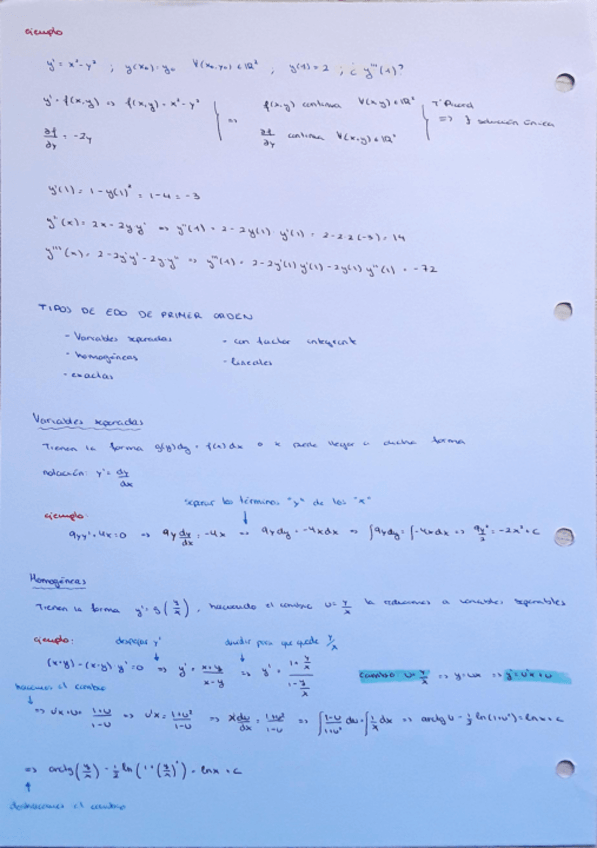 ejemplo
y' = x² - y² ; y(x₀) = y₀ ∀(x₀,y₀) ∈ ℝ² ; y(1) = 2 ; ¿ y'''(1)?
y' = f(x,y) => f(x,y) = x² - y² => f(x,y) continua ∀(x,y) ∈ ℝ² T. Picard => ∃ solución única
∂f/∂y = -2y ∂f/∂y continua ∀(x,y) ∈ ℝ²
y'(1) = 1 - y(1)² = 1 - 4 = -3
y''(x) = 2x - 2y y' => y''(1) = 2 - 2y(1) · y'(1) = 2 - 2·2(-3) = 14
y'''(x) = 2 - 2y'y' - 2y·y'' => y'''(1) = 2 - 2y'(1) y'(1) - 2y(1) y''(1) = -72
TIPOS DE EDO DE PRIMER ORDEN
- Variables separadas - con factor integrante
- homogéneas - lineales
- exactas
Variables separadas
Tienen la forma g(y)dy = f(x)dx o se puede llegar a dicha forma
notación: y' = dy/dx
separar los términos "y" de los "x"
ejemplo:
9yy' + 4x = 0 => 9y dy/dx = -4x => 9y dy = -4x dx => ∫9y dy = ∫-4x dx => 9y²/2 = -2x² + C
Homogéneas
Tienen la forma y' = g(y/x), haciendo el cambio u = y/x la reducimos a variables separables
ejemplo: despejar y' dividir para que quede y/x
(x+y) - (x-y) y' = 0 => y' = x+y/x-y => y' = 1 + y/x / 1 - y/x cambio u = y/x => y = ux => y' = u'x + u
hacemos el cambio
=> u'x + u = 1+u/1-u => u'x = 1+u²/1-u => x du/dx = 1+u²/1-u => ∫ 1-u/1+u² du = ∫ 1/x dx => arctg u - ½ ln(1+u²) = ln x + C
=> arctg(y/x) - ½ ln(1+(y/x)²) = ln x + C
deshacemos el cambio